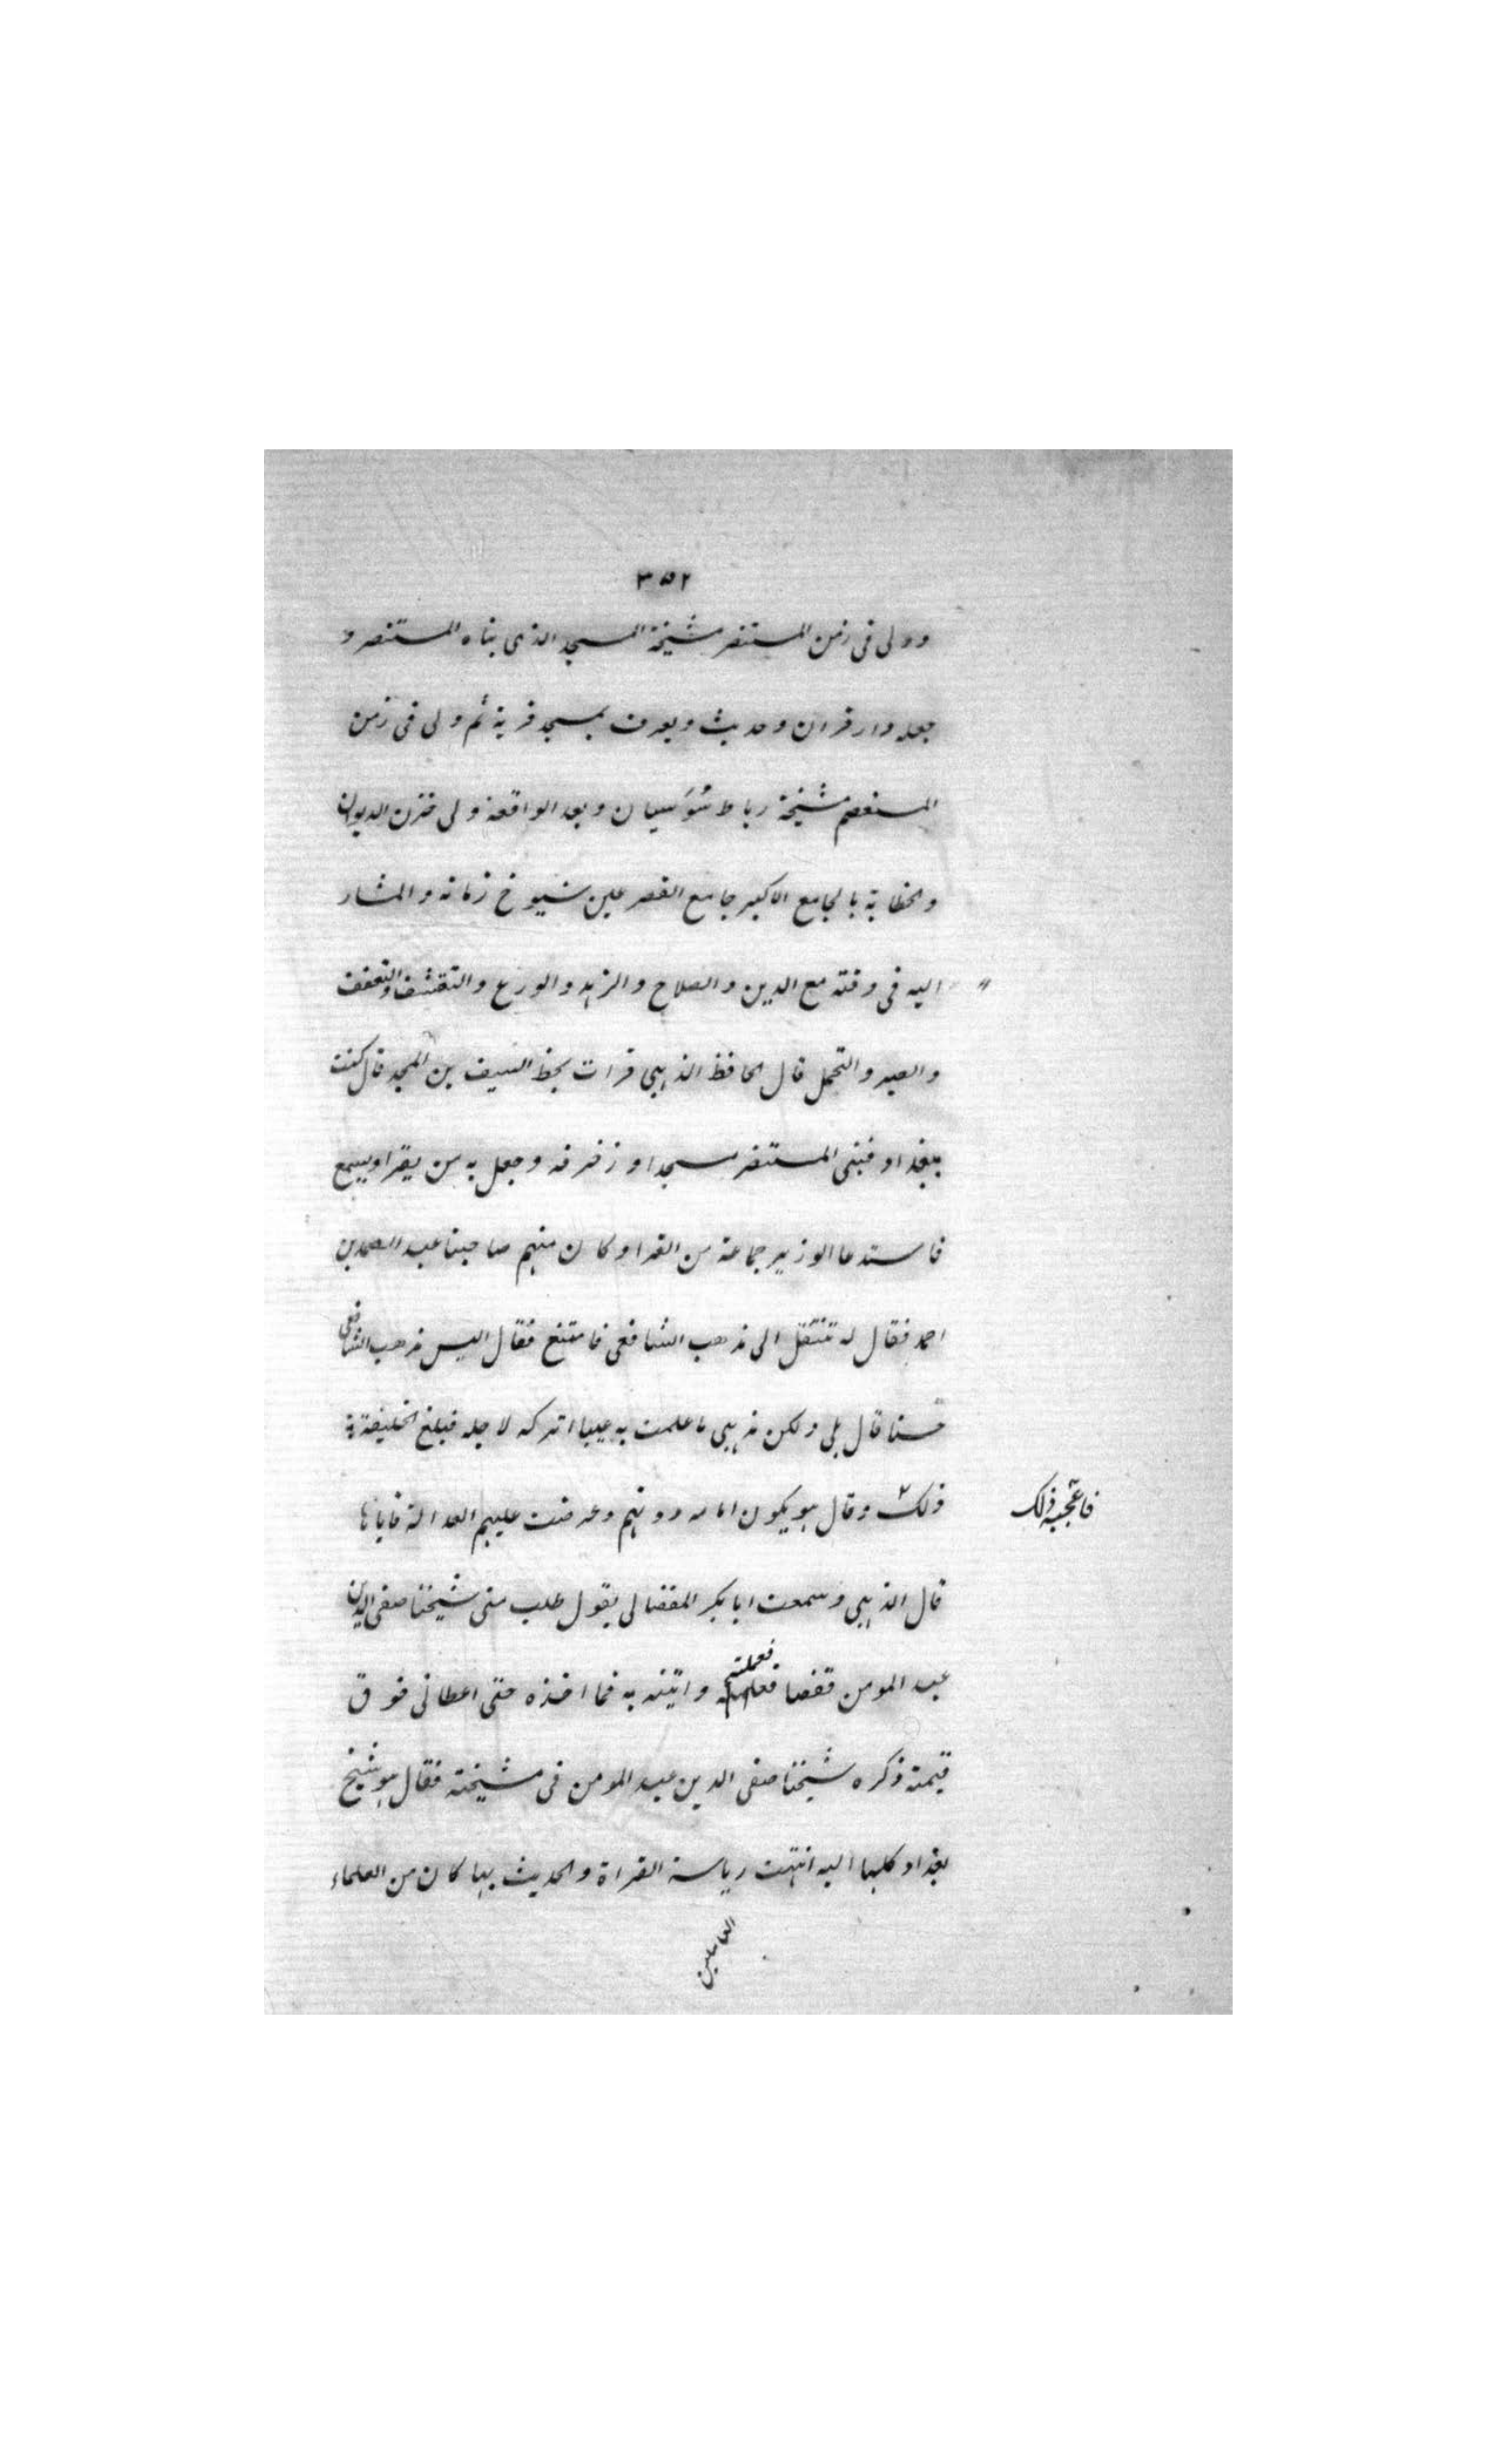 ٣٥٢
وولى فى زمن المستنصر مشيخة المسجد الذى بناه المستنصر و
جعله دار قران وحديث ويعرف بمسجد قرية ثم ولى فى زمن
المستعصم مشيخة رباط سُوَسيان وبعد الواقعة ولى خزن الديوان
والخطابة بالجامع الاكبر جامع القصر عين شيوخ زمانه والمشار
اليه فى وقته مع الدين والصلاح والزهد والورع والتقشف والتعفف
والصبر والتحمل قال الحافظ الذهبى قرات بخط السيف بن المجد قال كنت
ببغداد فبنى المستنصر مسجدا وزخرفه وجعل به من يقرا ويسمع
فاستدعا الوزير جماعة من القرا وكان منهم صاحبنا عبد الصمد بن
احمد فقال له تنتقل الى مذهب الشافعى فامتنع فقال اليس مذهب الشافعى
حسنا قال بلى ولكن مذهبى ما علمت به عيبا اتركه لاجله فبلغ الخليفة
ذلك وقال هو يكون امامه دونهم وعرضت عليهم العدالة فاباها
فاعجبه ذلك
قال الذهبى وسمعت ابا بكر المقضالى يقول طلب منى شيخنا صفى الدين
عبد المومن قفصا فعملته واتيته به فما اخذه حتى اعطانى فوق
قيمته ذكره شيخنا صفى الدين عبد المومن فى مشيخته فقال هو شيخ
بغداد كلها اليه انتهت رياسة القراة والحديث بها كان من العلماء
العاملين